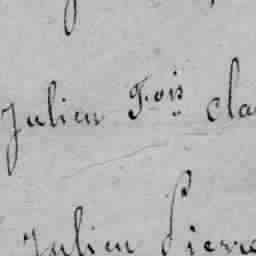 Julien F.ois cla
Julien Pierre